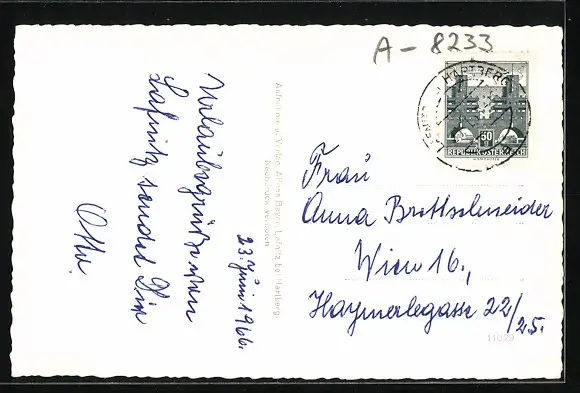 A-8233
HARTBERG
50
REPUBLIK ÖSTERREICH
Urlaubsgrüße von
Lafnitz sendet Dir
Otto.
23. Juni 1966.
Aufnahme u. Verlag Alfons Bayer, Lafnitz bei Hartberg.
Nachdruck verboten
Frau
Anna Brettschneider
Wien 16.,
Haymerlegasse 22/
25.
11029